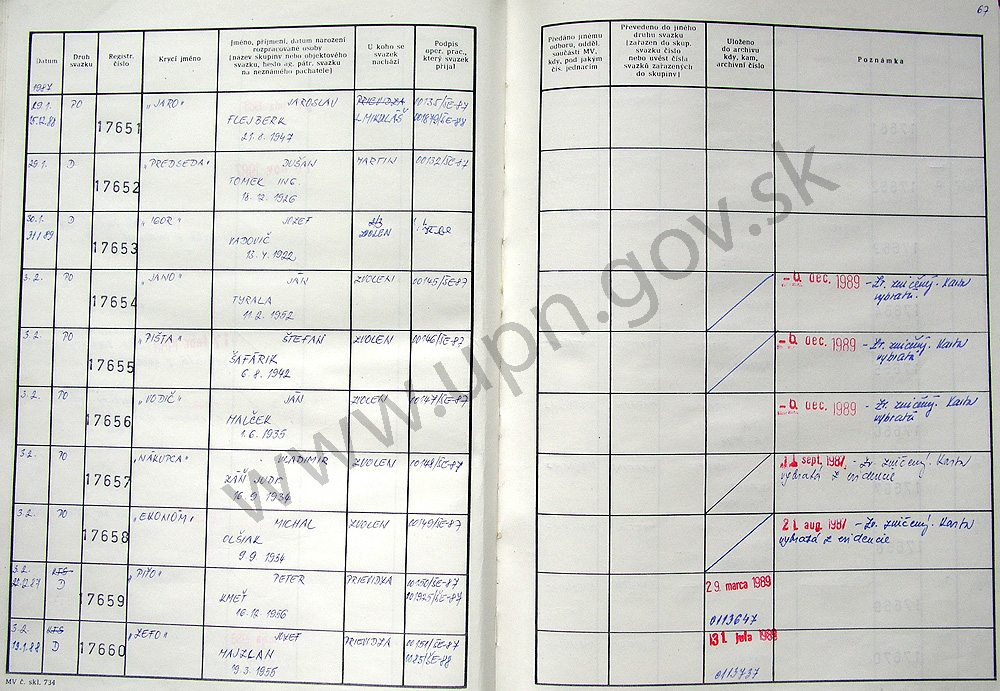 67
Datum
Druh svazku
Registr. číslo
Krycí jméno
Jméno, příjmení, datum narození
rozpracované osoby
[název skupiny nebo objektového
svazku, heslo ag. pátr. svazku
na neznámého pachatele]
U koho se
svazek
nachází
Podpis
oper. prac.,
který svazek
přijal
Předáno jinému
odboru, odděl.
součásti MV,
kdy, pod jakým
čís. jednacím
Převedeno do jiného
druhu svazku
[zařazen do skup.
svazku číslo
nebo uvést čísla
svazků zařazených
do skupiny]
Uloženo
do archivu
kdy, kam,
archivní číslo
Poznámka
1987
29.1. PO 17651 "JARO" JAROSLAV PRIEVIDZA 00135/ŠE-87
15.12.88 FLEJBERK L.MIKULÁŠ 001879/ŠE-88
21.6.1947
29.1. D 17652 "PREDSEDA" DUŠAN MARTIN 00132/ŠE-87
TOMEK ING.
18.12.1926
30.1. D 17653 "IGOR" JOZEF
31.1.89 VADOVIČ ZVOLEN
13.4.1922
3.2. PO 17654 "JANO" JÁN ZVOLEN 00145/ŠE-87 dec. 1989 - Zv. zničený. Karta
TYRALA vybratá.
11.2.1952
3.2. PO 17655 "PIŠTA" ŠTEFAN ZVOLEN 00146/ŠE-87 dec. 1989 - Zv. zničený. Karta
ŠAFÁRIK vybratá
6.8.1942
3.2. PO 17656 "VODIČ" JÁN ZVOLEN 00147/ŠE-87 dec. 1989 - Zv. zničený. Karta
MALČEK vybratá
1.6.1935
3.2. PO 17657 "NÁKUPCA" VLADIMIR ZVOLEN 00148/ŠE-87 sept. 1987 - Zv. zničený. Karta
JUDr vybratá z evidencie
16.9.1934
3.2. PO 17658 "EKONÓM" MICHAL ZVOLEN 00149/ŠE-87 21. aug. 1987 - Zv. zničený. Karta
OLŠIAK vybratá z evidencie
9.9.1934
3.2. KTS 17659 "PIŤO" PETER PRIEVIDZA 00150/ŠE-87 29. marca 1989
22.12.87 D KMEŤ 001925/ŠE-87
16.12.1956 0113647
3.2. KTS 17660 "ZEFO" JOZEF PRIEVIDZA 00151/ŠE-87 31. jula 1989
19.1.88 D MAJZLAN 0085/ŠE-88
19.3.1955 0113737
MV č. skl. 734
www.upn.gov.sk